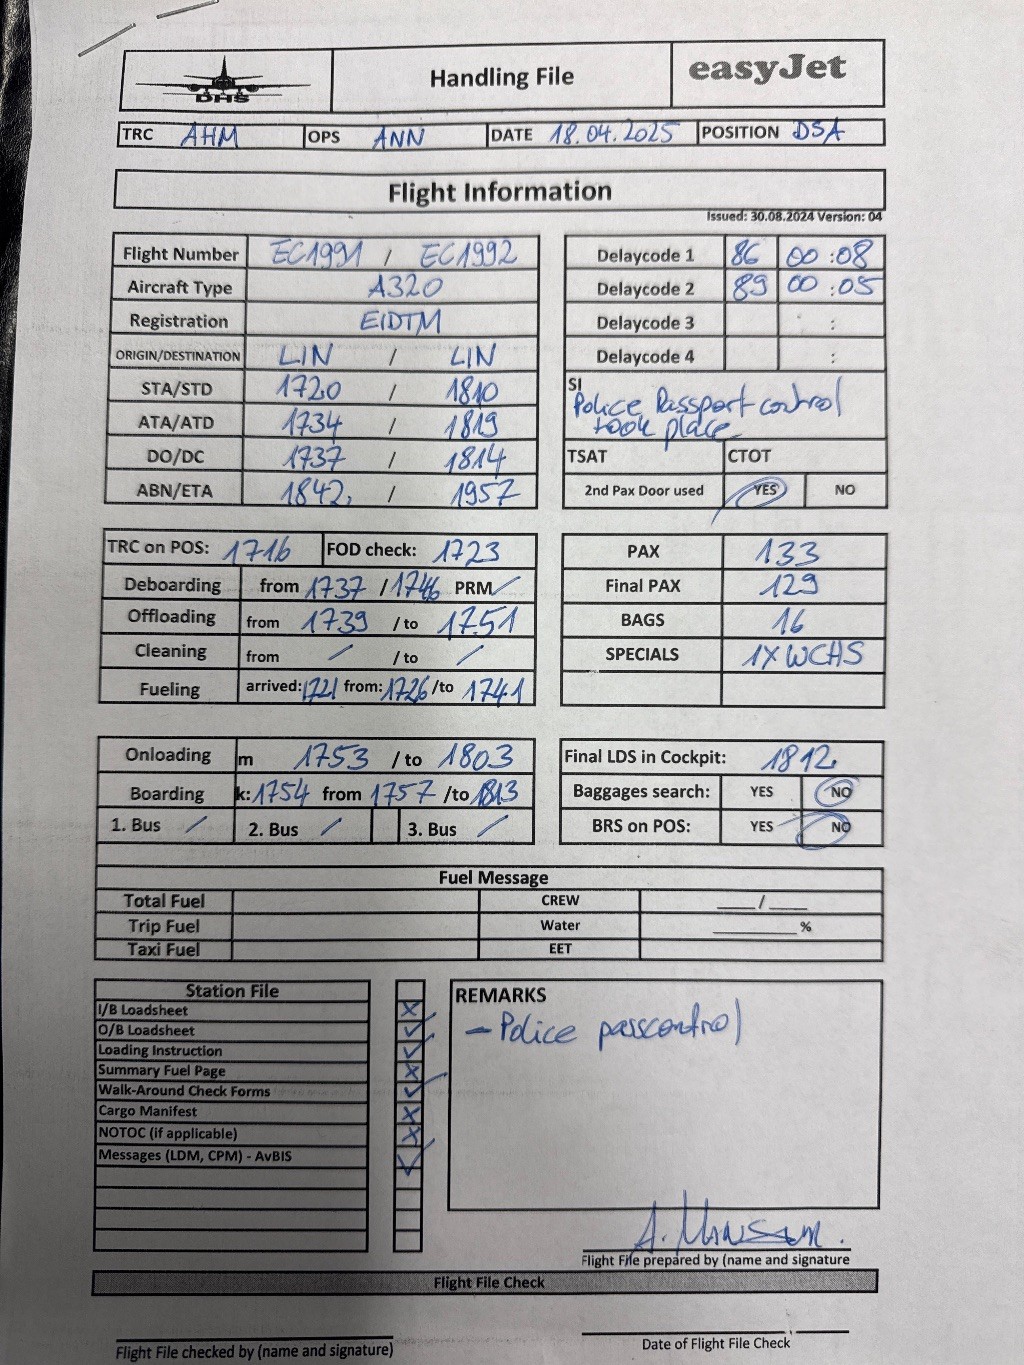 DHS
Handling File
easyJet
TRC AHM OPS ANN DATE 18.04.2025 POSITION DSA
Flight Information
Issued: 30.08.2024 Version: 04
Flight Number EC1991 / EC1992
Aircraft Type A320
Registration EIDTM
ORIGIN/DESTINATION LIN / LIN
STA/STD 1720 / 1810
ATA/ATD 1734 / 1819
DO/DC 1737 / 1814
ABN/ETA 1842 / 1957
Delaycode 1 86 00:08
Delaycode 2 89 00:05
Delaycode 3 :
Delaycode 4 :
SI
Police Passport control
took place
TSAT CTOT
2nd Pax Door used YES NO
TRC on POS: 1716 FOD check: 1723
Deboarding from 1737 / 1746 PRM /
Offloading from 1739 / to 1751
Cleaning from / / to /
Fueling arrived: 1721 from: 1726 /to 1741
PAX 133
Final PAX 129
BAGS 16
SPECIALS 1X WCHS
Onloading m 1753 / to 1803
Boarding k: 1754 from 1757 /to 1813
1. Bus / 2. Bus / 3. Bus /
Final LDS in Cockpit: 1812
Baggages search: YES NO
BRS on POS: YES NO
Fuel Message
Total Fuel CREW ___/___
Trip Fuel Water ______ %
Taxi Fuel EET
Station File
I/B Loadsheet X
O/B Loadsheet ✓
Loading Instruction ✓
Summary Fuel Page X
Walk-Around Check Forms ✓
Cargo Manifest X
NOTOC (if applicable) X
Messages (LDM, CPM) - AvBIS ✓
REMARKS
- Police passcontrol
Flight File prepared by (name and signature
Flight File Check
Flight File checked by (name and signature)
Date of Flight File Check